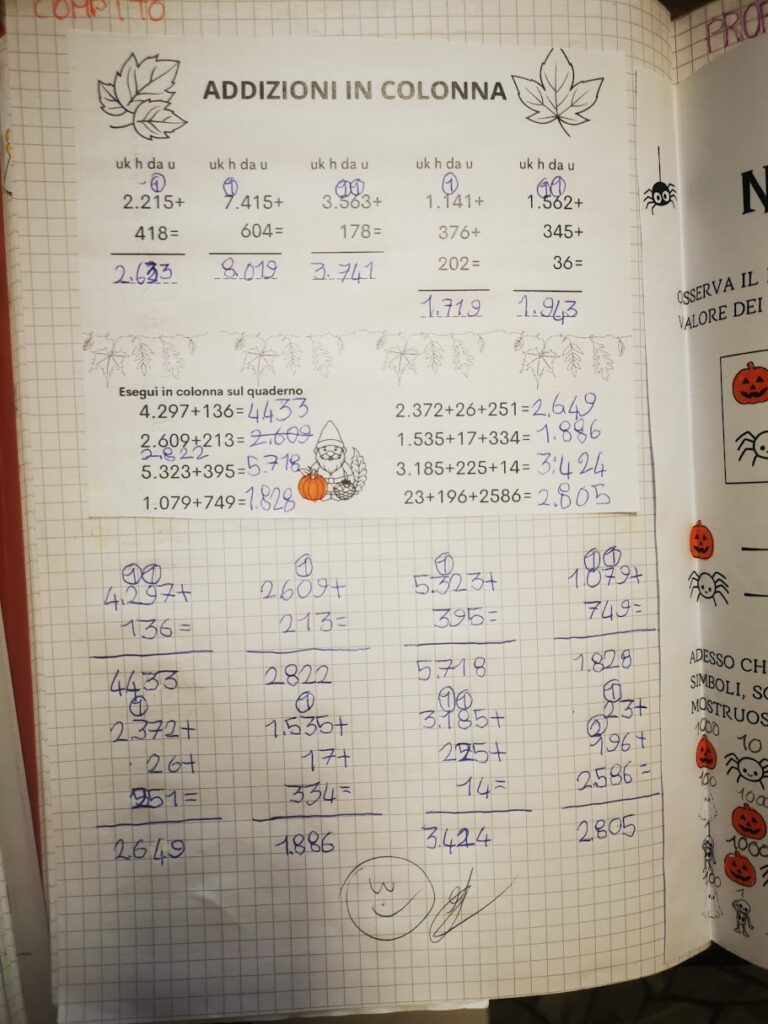 COMPITO
ADDIZIONI IN COLONNA
uk h da u uk h da u uk h da u uk h da u uk h da u
1 1 11 1 11
2.215+ 7.415+ 3.563+ 1.141+ 1.562+
418= 604= 178= 376+ 345+
2.633 8.019 3.741 202= 36=
1.719 1.943
Esegui in colonna sul quaderno
4.297+136=4433
2.609+213=2.609
2.822
5.323+395=5.718
1.079+749=1.828
2.372+26+251=2.649
1.535+17+334=1.886
3.185+225+14=3.424
23+196+2586=2.805
11 1 1 11
4.297+ 2609+ 5.323+ 1.079+
136= 213= 395= 749=
4433 2822 5.718 1.828
1 1 11 1
2.372+ 1.535+ 3.185+ 23+
26+ 17+ 225+ 196+
251= 334= 14= 2586=
2649 1.886 3.424 2.805
PRIOR
N
OSSERVA IL
VALORE DEI
ADESSO CH
SIMBOLI, SC
MOSTRUOS
1000
10
100
1000
100
1